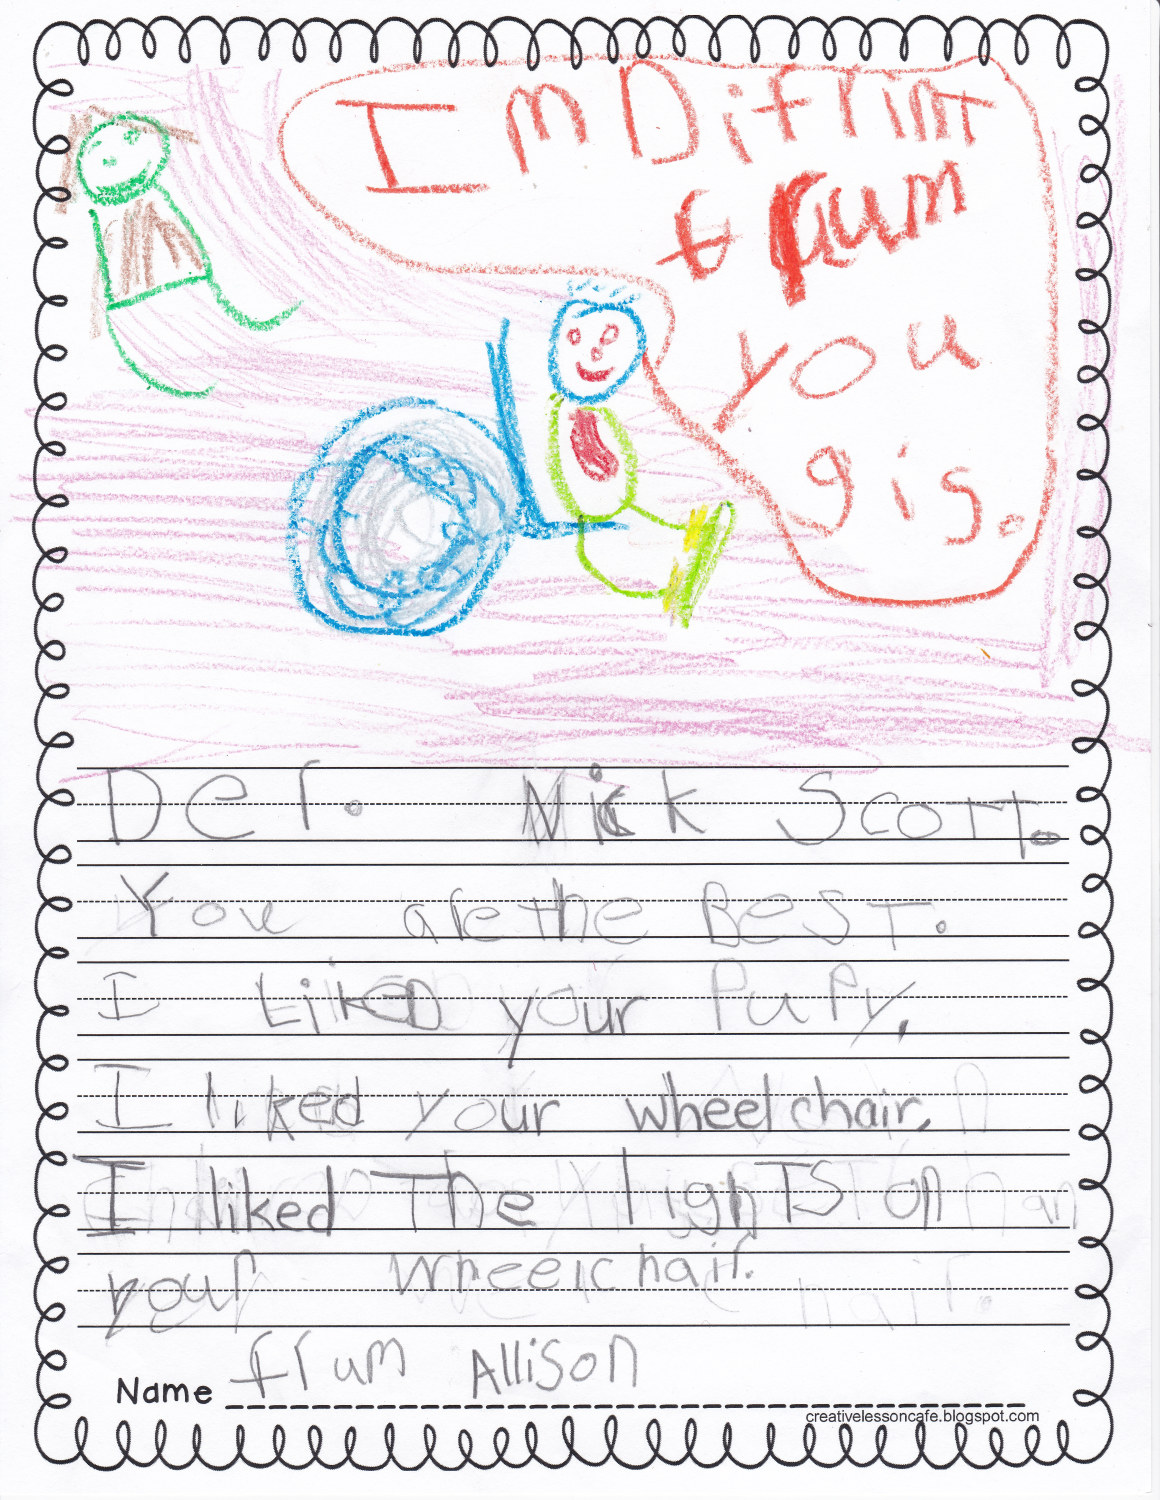 Im Difrint
frum
you
gis.
Der. Nick Scott.
You are the Best.
I Liked your Pupy.
I liked your wheelchair.
I liked The lighTS on
your wheelchair.
Name frum Allison
creativelessoncafe.blogspot.com